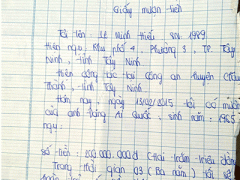 Giấy mượn tiền
Tôi tên: Lê Minh Hiếu sn: 1989.
Hiện ngụ: Khu phố 4, Phường 3, TP. Tây
Ninh, tỉnh Tây Ninh.
Hiện công tác tại công an huyện Châu
Thành, tỉnh Tây Ninh.
Hôm nay, ngày 13/02/2015 tôi có mượn
của anh Ái Quốc, sinh năm: 1965
ngụ:
Số tiền: 200.000.000đ (Hai trăm triệu đồng
Trong thời gian 03 (Ba năm)